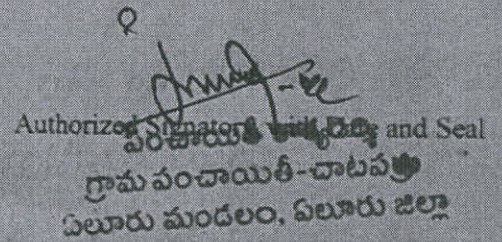 Authorized Signatory with Date and Seal
పంచాయతీ కార్యదర్శి
గ్రామ పంచాయితీ-చాటపర్రు
ఏలూరు మండలం, ఏలూరు జిల్లా